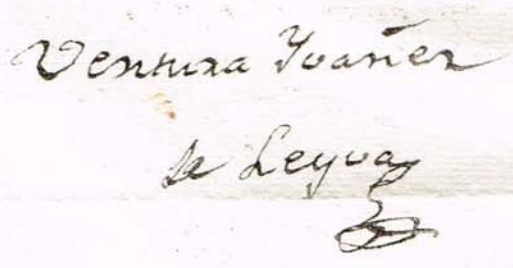 Ventura Yvañez
de Leyva